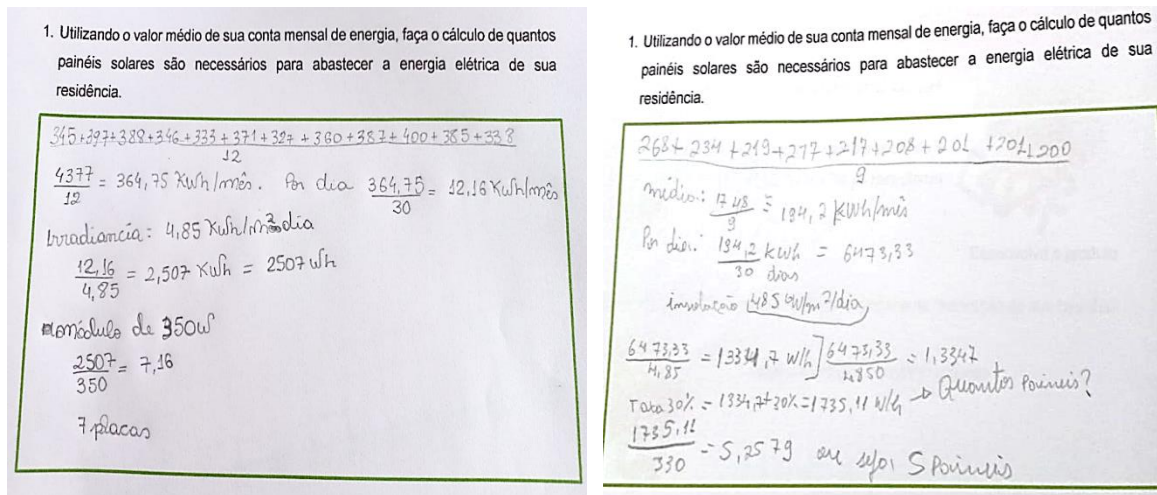 1. Utilizando o valor médio de sua conta mensal de energia, faça o cálculo de quantos
painéis solares são necessários para abastecer a energia elétrica de sua
residência.
345+397+388+346+333+371+327+360+387+400+385+338
12
4377/12 = 364,75 KWh/mês. Por dia 364,75/30 = 12,16 KWh/mês
Irradiancia: 4,85 KWh/m²dia
12,16/4,85 = 2,507 KWh = 2507 Wh
módulo de 350W
2507/350 = 7,16
7 placas
1. Utilizando o valor médio de sua conta mensal de energia, faça o cálculo de quantos
painéis solares são necessários para abastecer a energia elétrica de sua
residência.
268+234+219+217+217+208+201+201+200
9
média: 1748/9 = 194,2 KWh/mês
Por dia: 194,2 kwh/30 dias = 6473,33
insolação 485 W/m²/dia
6473,33/4,85 = 1334,7 w/h] 6473,33/4850 = 1,3347
Taxa 30% = 1334,7+30% = 1735,11 W/h → Quantos Paineis?
1735,11/330 = 5,2579 ou seja 5 Paineis